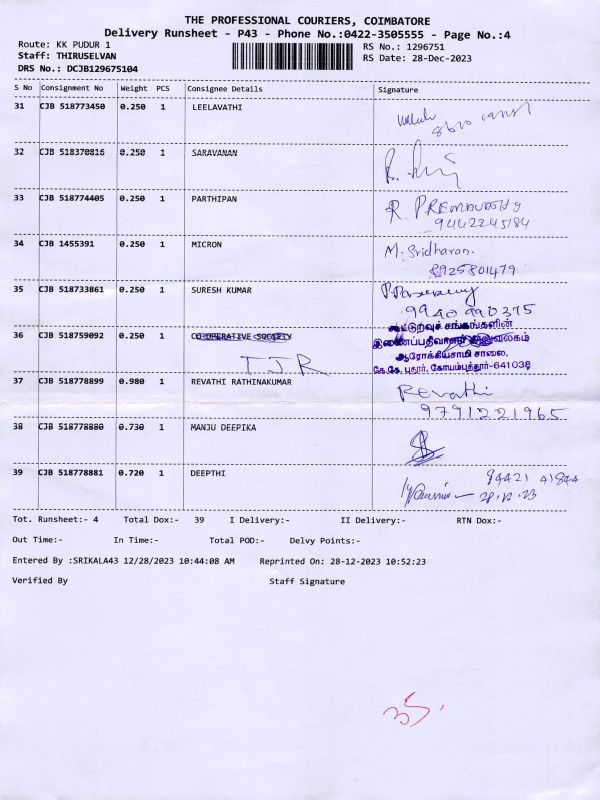 THE PROFESSIONAL COURIERS, COIMBATORE
Delivery Runsheet - P43 - Phone No.:0422-3505555 - Page No.:4
Route: KK PUDUR 1
RS No.: 1296751
Staff: THIRUSELVAN
RS Date: 28-Dec-2023
DRS No.: DCJB129675104
S No Consignment No Weight PCS Consignee Details Signature
31 CJB 518773450 0.250 1 LEELAVATHI
32 CJB 518370816 0.250 1 SARAVANAN
33 CJB 518774405 0.250 1 PARTHIPAN
R. PREMAVATHY
9442245184
34 CJB 1455391 0.250 1 MICRON M. Sridharan.
8925801479
35 CJB 518733861 0.250 1 SURESH KUMAR
9940990375
36 CJB 518759092 0.250 1 CO-OPERATIVE SOCIETY
கூட்டுறவுச் சங்கங்களின்
இணைப்பதிவாளர் அலுவலகம்
ஆரோக்கியசாமி சாலை,
கே.கே. புதூர், கோயம்புத்தூர்-641038
TJR
37 CJB 518778899 0.980 1 REVATHI RATHINAKUMAR Revathi
9791221965
38 CJB 518778880 0.730 1 MANJU DEEPIKA
39 CJB 518778881 0.720 1 DEEPTHI 94421 41844
28.12.23
Tot. Runsheet:- 4 Total Dox:- 39 I Delivery:- II Delivery:- RTN Dox:-
Out Time:- In Time:- Total POD:- Delvy Points:-
Entered By :SRIKALA43 12/28/2023 10:44:08 AM Reprinted On: 28-12-2023 10:52:23
Verified By Staff Signature
35.